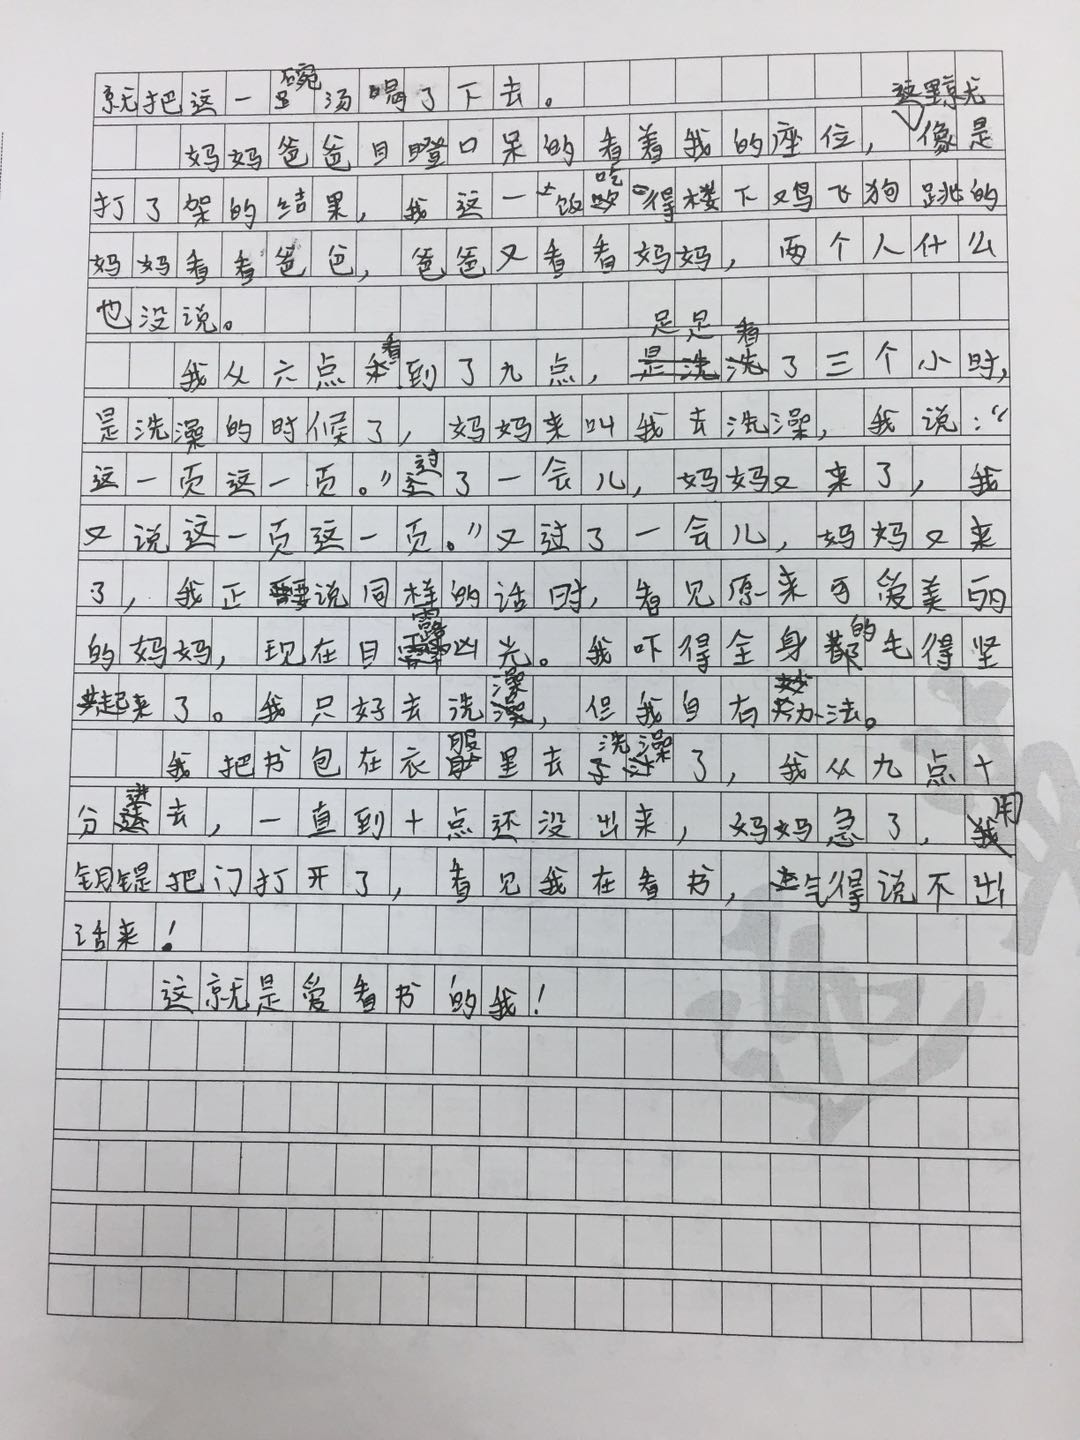 就把这一碗汤喝了下去。
妈妈爸爸目瞪口呆的看着我的座位，这里就像是
打了架的结果，我这一饭吃得楼下鸡飞狗跳的
妈妈看看爸爸，爸爸又看看妈妈，两个人什么
也没说。
我从六点看到了九点，足足看了三个小时，
是洗澡的时候了，妈妈来叫我去洗澡，我说：“
这一页这一页。”过了一会儿，妈妈又来了，我
又说这一页这一页。”又过了一会儿，妈妈又来
了，我正要说同样的话时，看见原来可爱美丽
的妈妈，现在目露凶光。我吓得全身的毛得坚
起来了。我只好去洗澡，但我自有妙办法。
我把书包在衣服里去洗澡了，我从九点十
分进去，一直到十点还没出来，妈妈急了，用
钥匙把门打开了，看见我在看书，气得说不出
话来！
这就是爱看书的我！